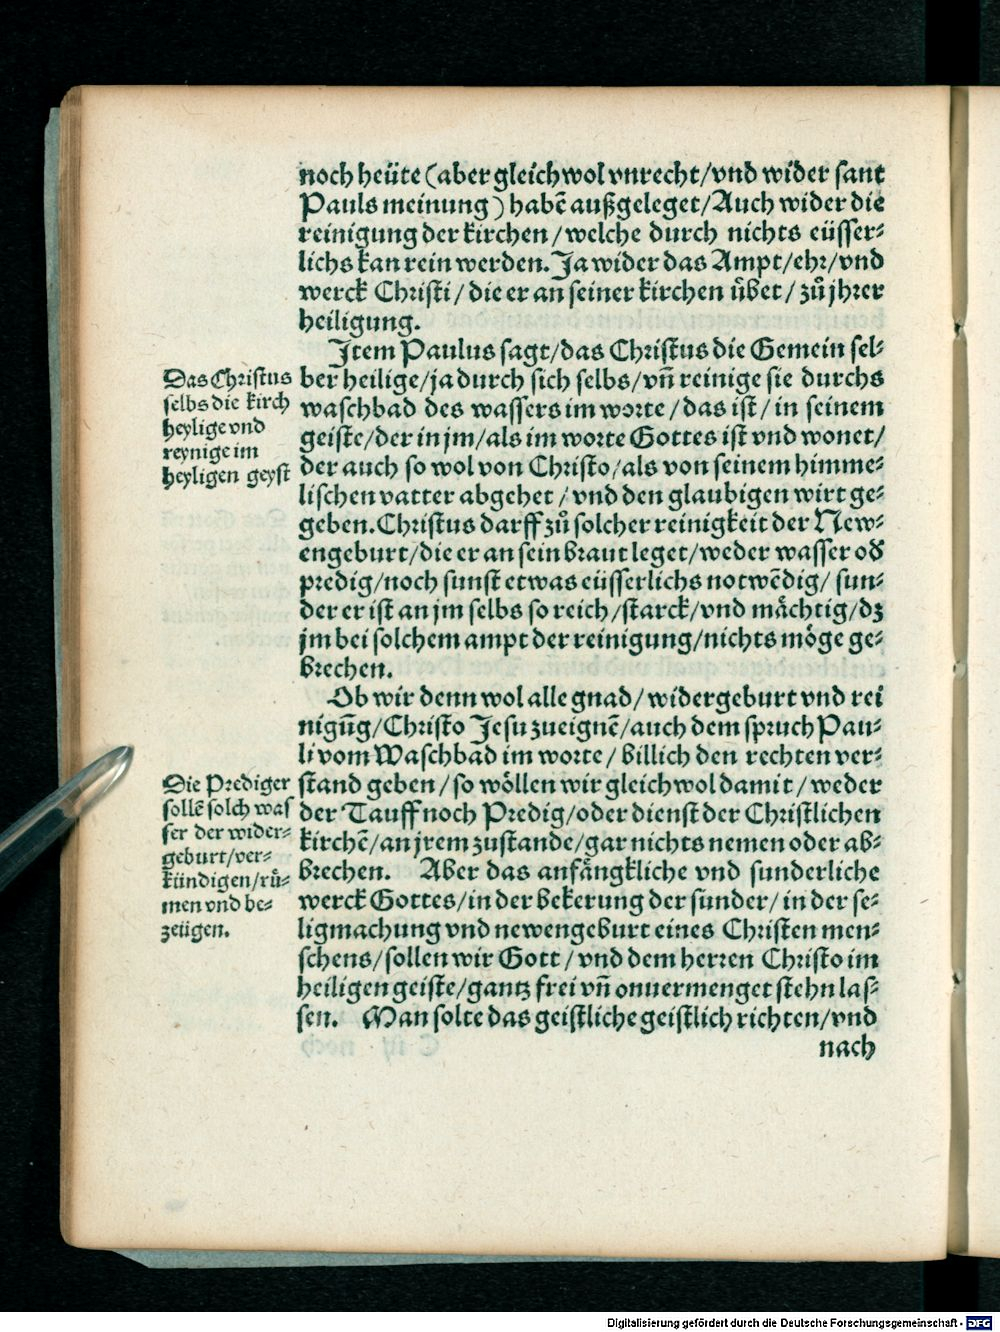 noch heüte (aber gleichwol vnrecht/vnd wider sant
Pauls meinung) habē außgeleget/Auch wider die
reinigung der kirchen/welche durch nichts eüsser⸗
lichs kan rein werden. Ja wider das Ampt/ehr/vnd
werck Christi/die er an seiner kirchen übet/zůjhrer
heiligung.
Item Paulus sagt/das Christus die Gemein sel⸗
ber heilige/ja durch sich selbs/vn̄ reinige sie durchs
waschbad des wassers im worte/das ist/in seinem
geiste/der in jm/als im worte Gottes ist vnd wonet/
der auch so wol von Christo/als von seinem himme⸗
lischen vatter abgehet/vnd den glaubigen wirt ge⸗
geben. Christus darff zů solcher reinigkeit der New⸗
engeburt/die er an sein braut leget/weder wasser od̄
predig/noch sunst etwas eüsserlichs notwēdig/sun⸗
der er ist an jm selbs so reich/starck/vnd mächtig/dz
jm bei solchem ampt der reinigung/nichts möge ge⸗
brechen.
Ob wir denn wol alle gnad/widergeburt vnd rei
nigūg/Christo Jesu zueignē/auch dem spruch Pau⸗
li vom Waschbad im worte/billich den rechten ver⸗
stand geben/so wöllen wir gleichwol damit/weder
der Tauff noch Predig/oder dienst der Christlichen
kirchē/an jrem zustande/gar nichts nemen oder ab⸗
brechen. Aber das anfängkliche vnd sunderliche
werck Gottes/in der bekerung der sünder/in der se⸗
ligmachung vnd newengeburt eines Christen men⸗
schens/sollen wir Gott/vnd dem herren Christo im
heiligen geiste/gantz frei vn̄ onuermenget stehn las⸗
sen. Man solte das geistliche geistlich richten/vnd
nach
Das Christus
selbs die kirch
heylige vnd
reynige im
heyligen geyst
Die Prediger
sollē solch was
ser der wider⸗
geburt/ver⸗
kündigen/rů⸗
men vnd be⸗
zeügen.
Digitalisierung gefördert durch die Deutsche Forschungsgemeinschaft - DFG